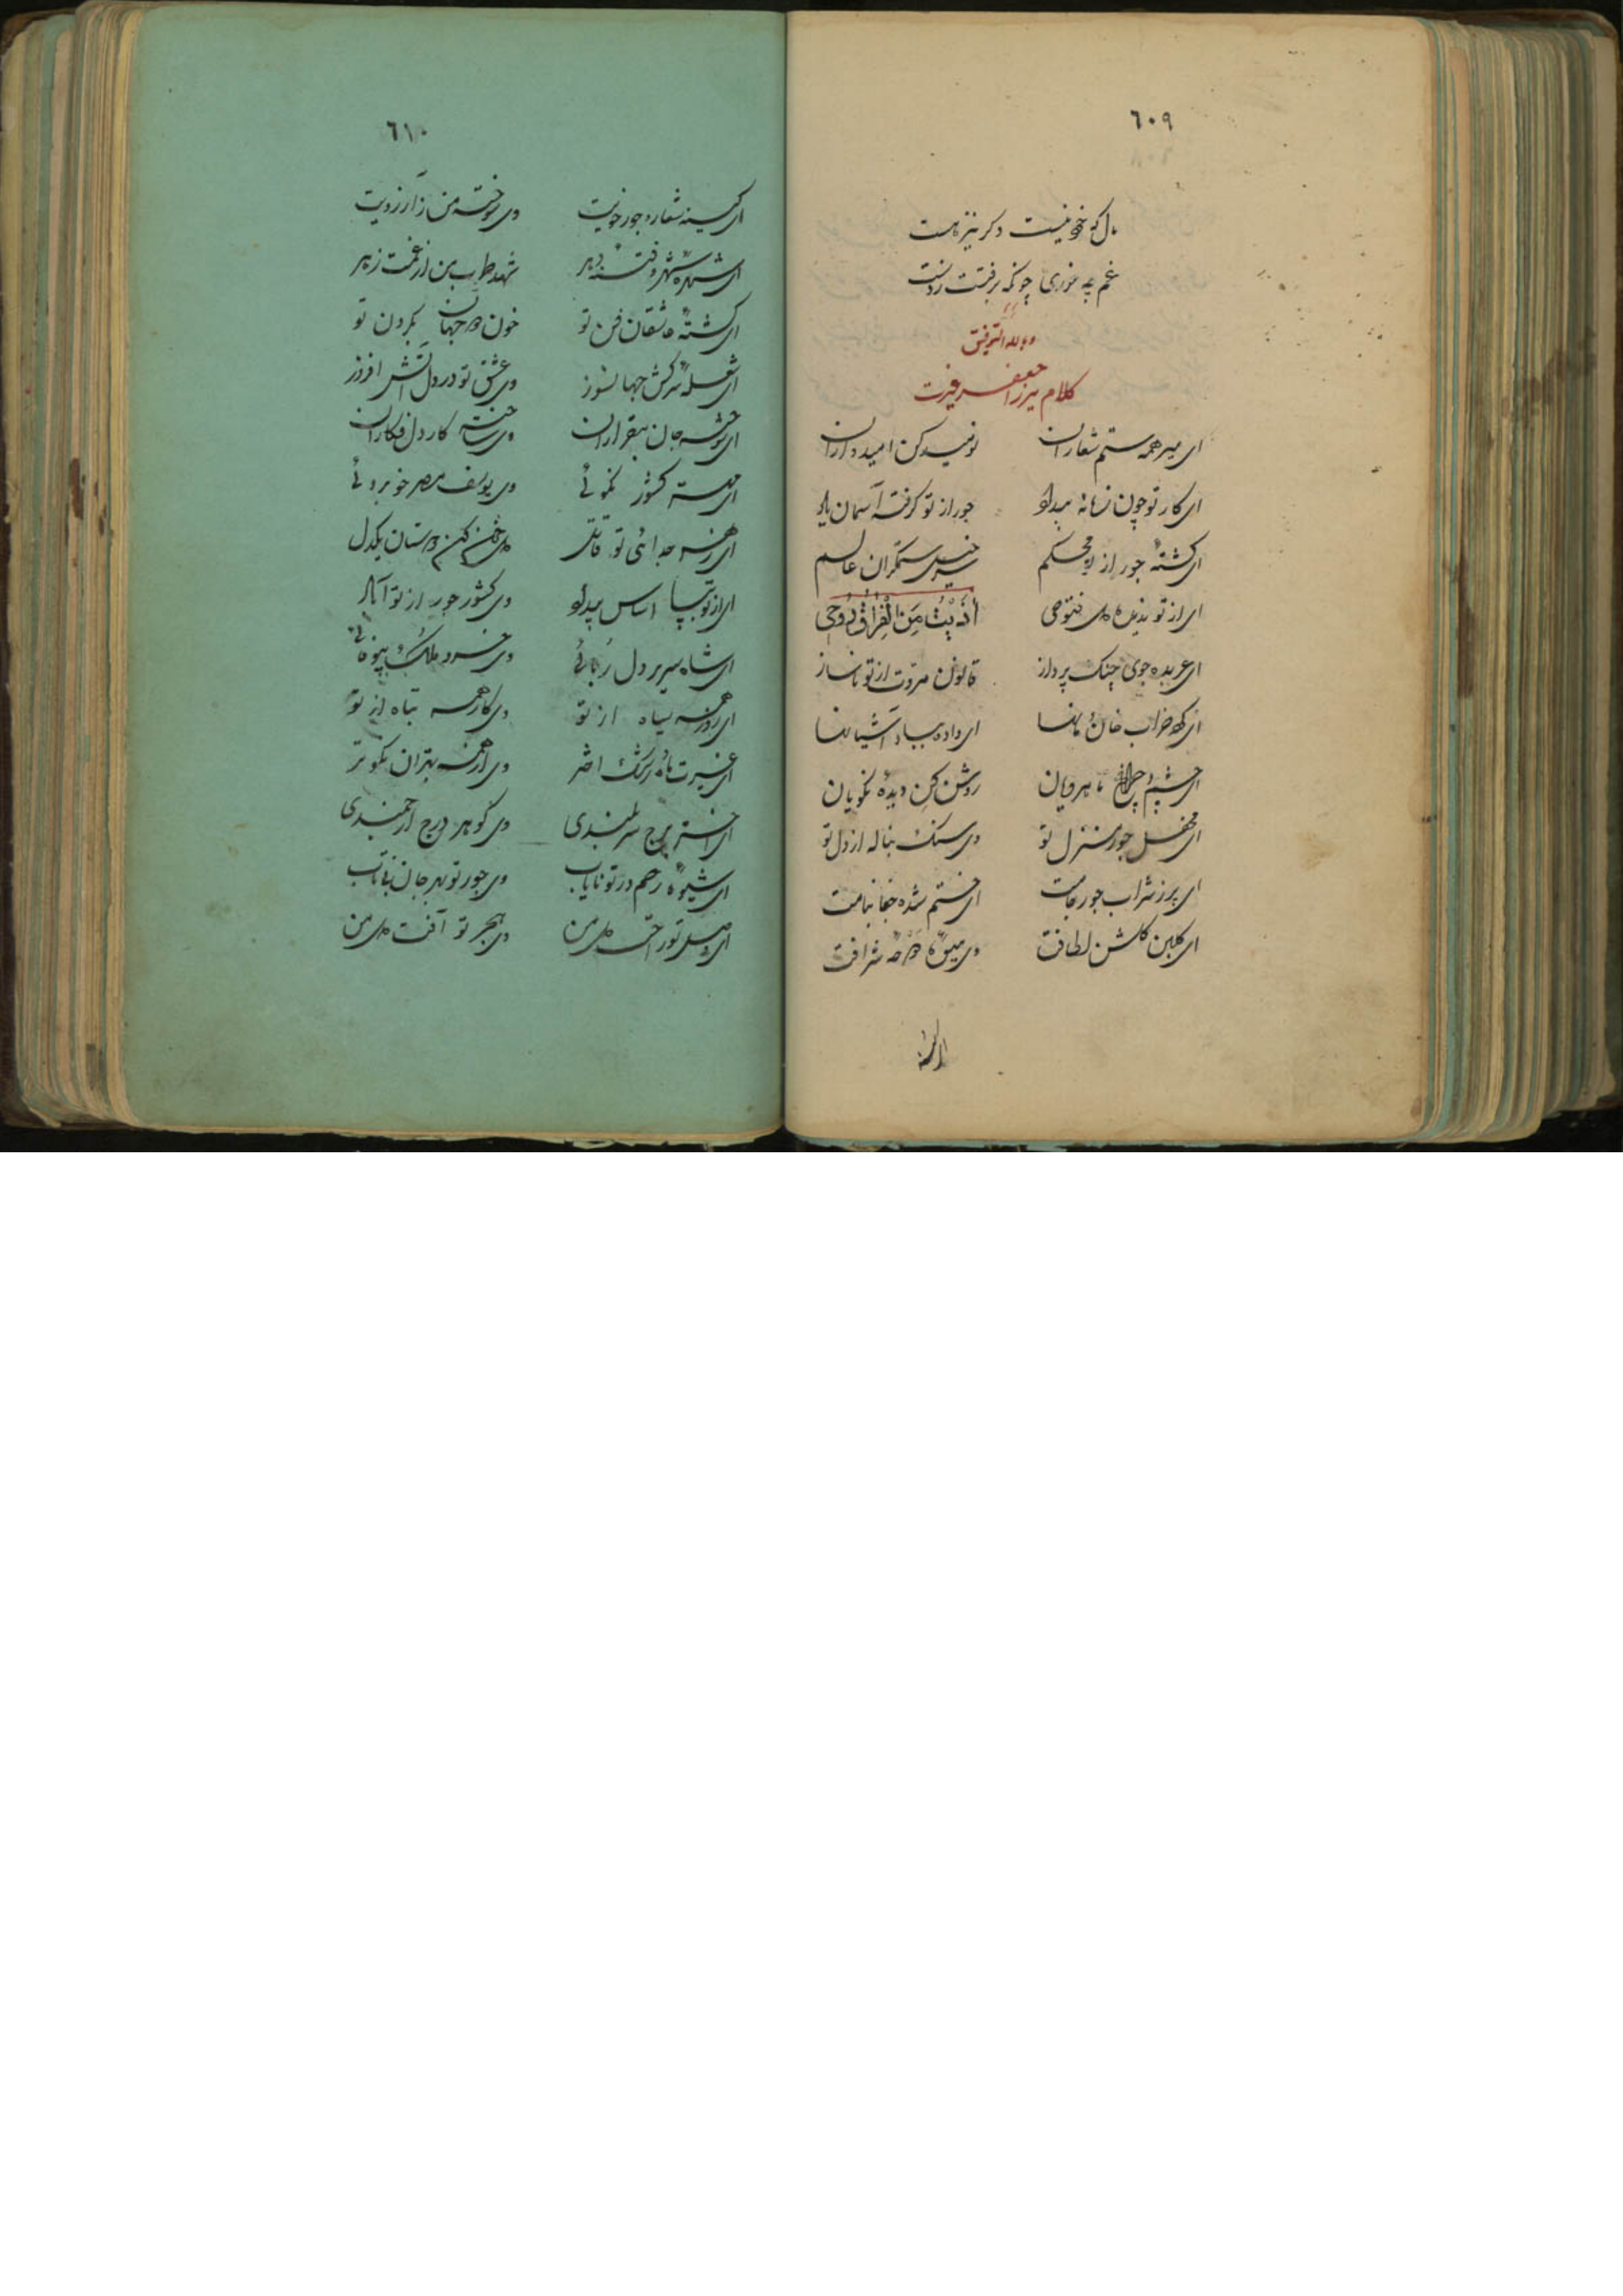 ٦٠٩
مال که خود نیست وگر نیز هست
غم چه خوری چونکه برفتت ز دست
وبالله التوفیق
کلام میرزا جعفر
ای میر همه ستم شعاران نومید کن امیدواران
ای کار تو چون زمانه بیداد جور از تو گرفته آسمان یاد
ای گشته جور از تو محکم سرخیل ستمگران عالم
ای از تو ندیده فتوحی أذبت من الفراق روحی
ای عربده جوی جنک پرداز قانون مروت از تو ناساز
ای کرده خراب خان و مانها ای داده بباد آشیانها
ای چشم و چراغ ماهرویان روشن کن دیده نکویان
ای محفل جور منزل تو وی سنک بناله از دل تو
ای پر ز شراب جور جامت ای ختم شده جفا بنامت
ای گلبن گلشن لطافت وی میوه شرافت
ای کینه
٦١٠
ای کینه شعار و جور خویت وی سوخته من ز آرزویت
ای شهره شهر و فتنه دهر شهد طرب من از غمت زهر
ای کشته عاشقان فن تو خون دو جهان بگردن تو
ای شعله سرکش جهانسوز وی عشق تو در دل آتش افروز
ای سوخته جان بیقراران وی ساخته کار دل فکاران
ای مه کشور نکوئی وی یوسف مصر خوبروئی
ای زهر جدائی تو قاتل دشمن کن دوستان یکدل
ای از تو بپا اساس بیداد وی کشور جور از تو آباد
ای شاه سریر دل ربائی وی خسرو ملک بیوفائی
ای روز همه سیاه از تو وی کار همه تباه از تو
ای غیرت ماه و رشک اختر وی از همه بهتران نکوتر
ای اختر برج سربلندی وی گوهر درج ارجمندی
ای شیوه رحم در تو نایاب وی جور تو بهر جان بیتاب
ای وصل تو راحت دل من وی هجر تو آفت دل من